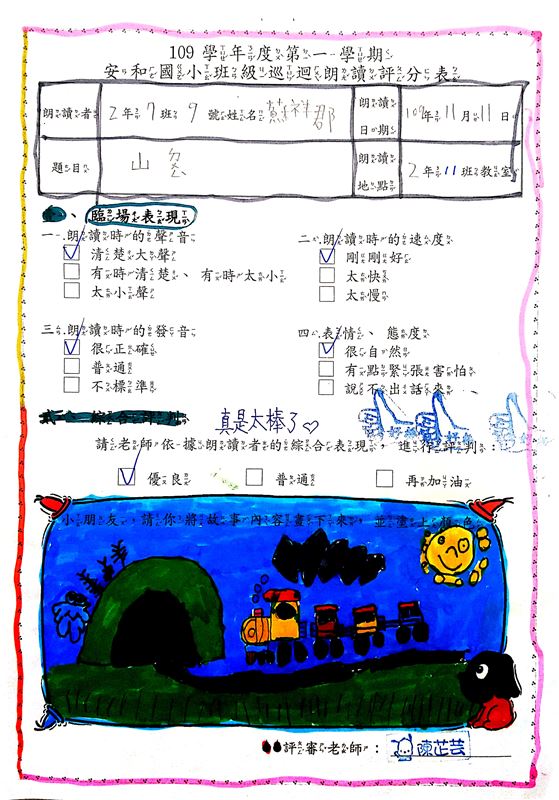 109 學年度第一學期
安和國小班級巡迴朗讀評分表
朗讀者 2年7班9號姓名
朗讀日期 109年11月11日
題目 山
朗讀地點 2年11班教室
、臨場表現
一、朗讀時的聲音
清楚大聲
有時清楚、有時太小
太小聲
二、朗讀時的速度
剛剛好
太快
太慢
三、朗讀時的發音
很正確
普通
不標準
四、表情、態度
很自然
有點緊張害怕
說不出話來
綜合評判
真是太棒了♡
請老師依據朗讀者的綜合表現，進行評判：
優良
普通
再加油
小朋友，請你將故事內容畫下來，並塗上顏色
評審老師：陳芷芸